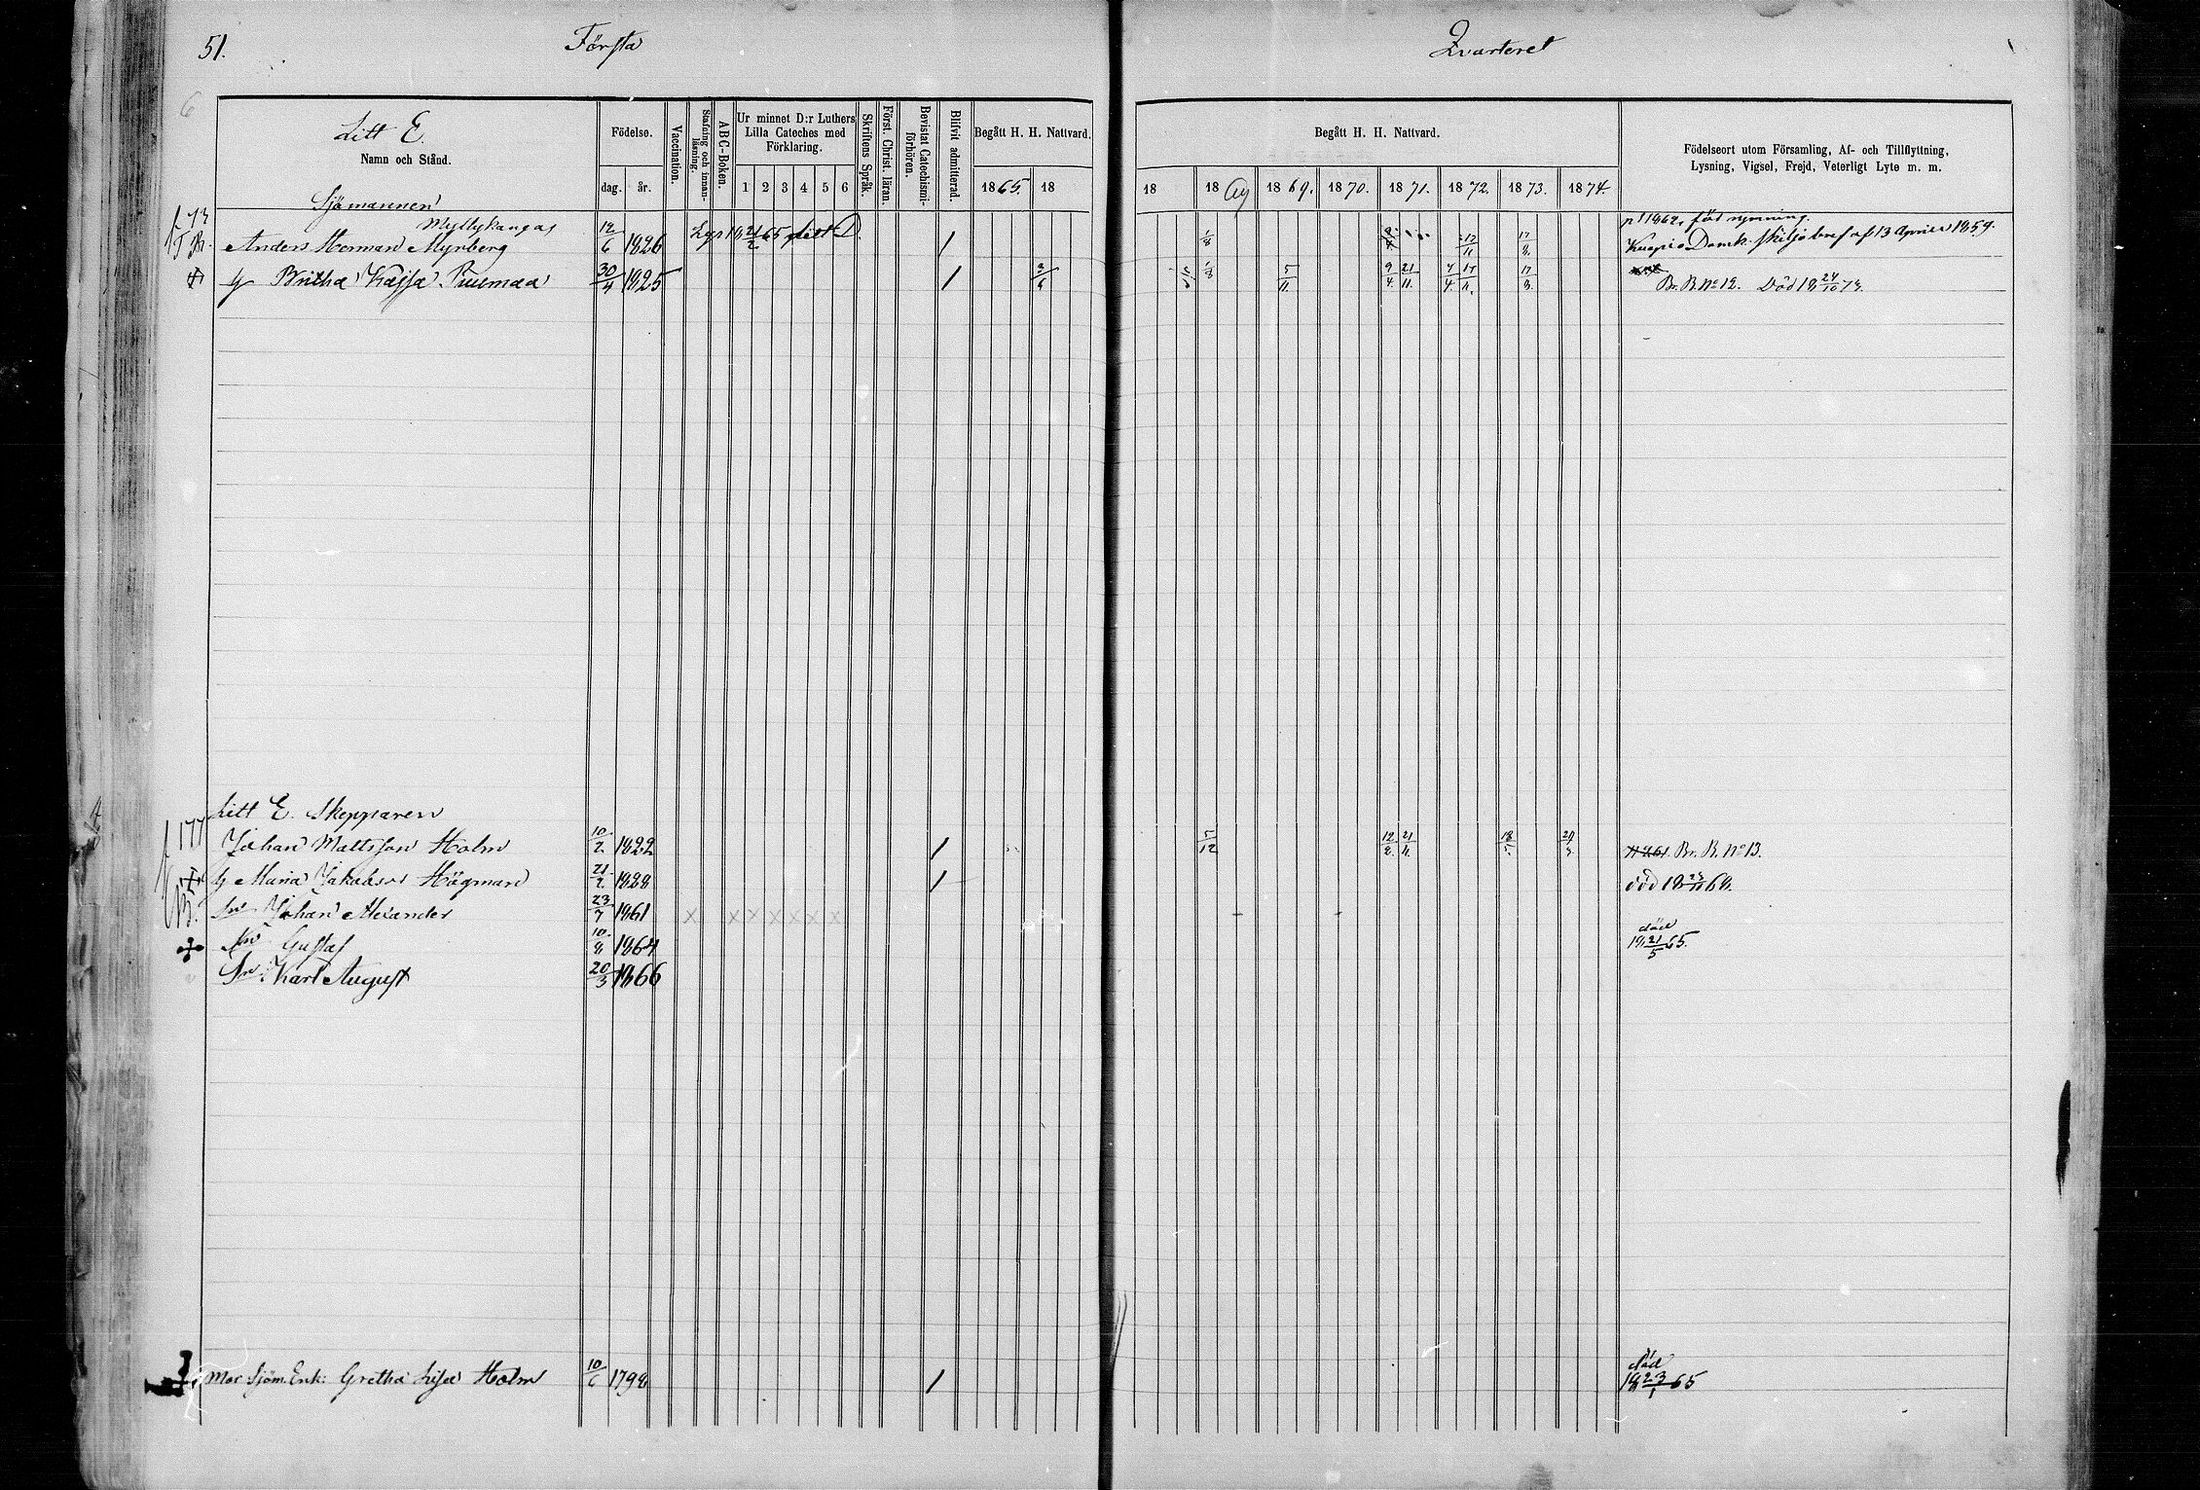 51.
Första
Qvarteret
6
Litt E.
Namn och Stånd.
Födelse.
dag.
år.
Vaccination.
Stafning och innanläsning.
ABC-Boken.
Ur minnet D:r Luthers
Lilla Cateches med
Förklaring.
1 2 3 4 5 6
Skriftens Språk.
Först. Christ. läran.
Bevistat Catechismi-
förhören.
Blifvit admitterad.
Begått H. H. Nattvard.
1865. 18
Begått H. H. Nattvard.
18 18 1869. 1870. 1871. 1872. 1873. 1874.
Födelseort utom Församling, Af- och Tillflyttning,
Lysning, Vigsel, Frejd, Veterligt Lyte m. m.
Sjömannen
Myllykangas
Anders Herman Myrberg 12/6 1826 1865 Litt D. för rymning.
Domk. skiljobref af 13 April 1859.
h Britha Kajsa 30/4 1825 Br. B. No 12. Död 18 24/10 73.
Litt E. Skepparen
177
Johan Mattsson Holm 10/2 1822 5/12 Br. B. No 13.
h Maria Jakobsdr Högman 21/2 1828 död
Sn Johan Alexander 23/7 1861
Sn Gustaf 10/8 1864 död
18 21/5 65.
Sn Karl August 20/3 1866
Mor Sjöm. Enk: Gretha Lisa Holm 10/6 1798 död
18 23/1 65